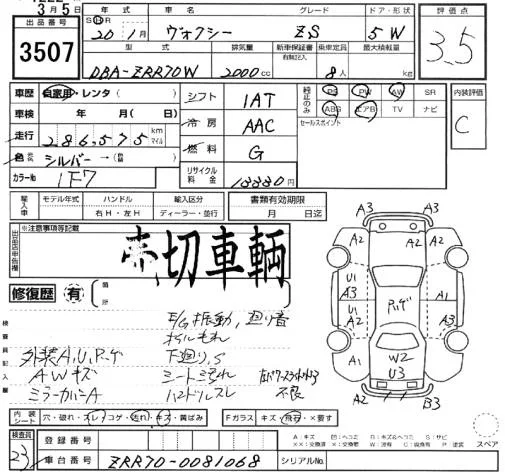 3月5日
出品番号 年式 車名 グレード ドア・形状 評価点
3507 S H 20 1月 ヴォクシー ZS 5W 3.5
型式 排気量 新車保証書 乗車定員 最大積載量
有無記入
DBA-ZRR70W 2000cc 8人 kg
車歴 自家用・レンタ( ) シフト 1AT 純正のみ PS PW AW SR 内装評価
車検 年 月( 日) 冷房 AAC ABS エアB TV ナビ C
走行 286,575 km マイル 燃料 G セールスポイント
色 シルバー → リサイクル料金 13330円
カラーNo 1F7
輸入車 モデル年式 ハンドル 輸入区分 書類有効期限
右H・左H ディーラー・並行 月 日迄
※注意事項等記載
売切車輌
修復歴 有 箇所
E/G振動,廻り音
オイルもれ
外装A,U,P,ゲ 下廻りS
AWキズ シートミ汚れ
ミラーカバーA ハンドルスレ 不良
A3 A3
A2 A2
U1
A3 A1
U1 A2
A2
W2
U3
A2 B3
内装シート 穴・破れ・スレ・コゲ・汚れ・キズ・黄ばみ Fガラス キズ・飛石・×要す
検査員 23 登録番号
車台番号 ZRR70-0081068 シリアルNo.
スペア